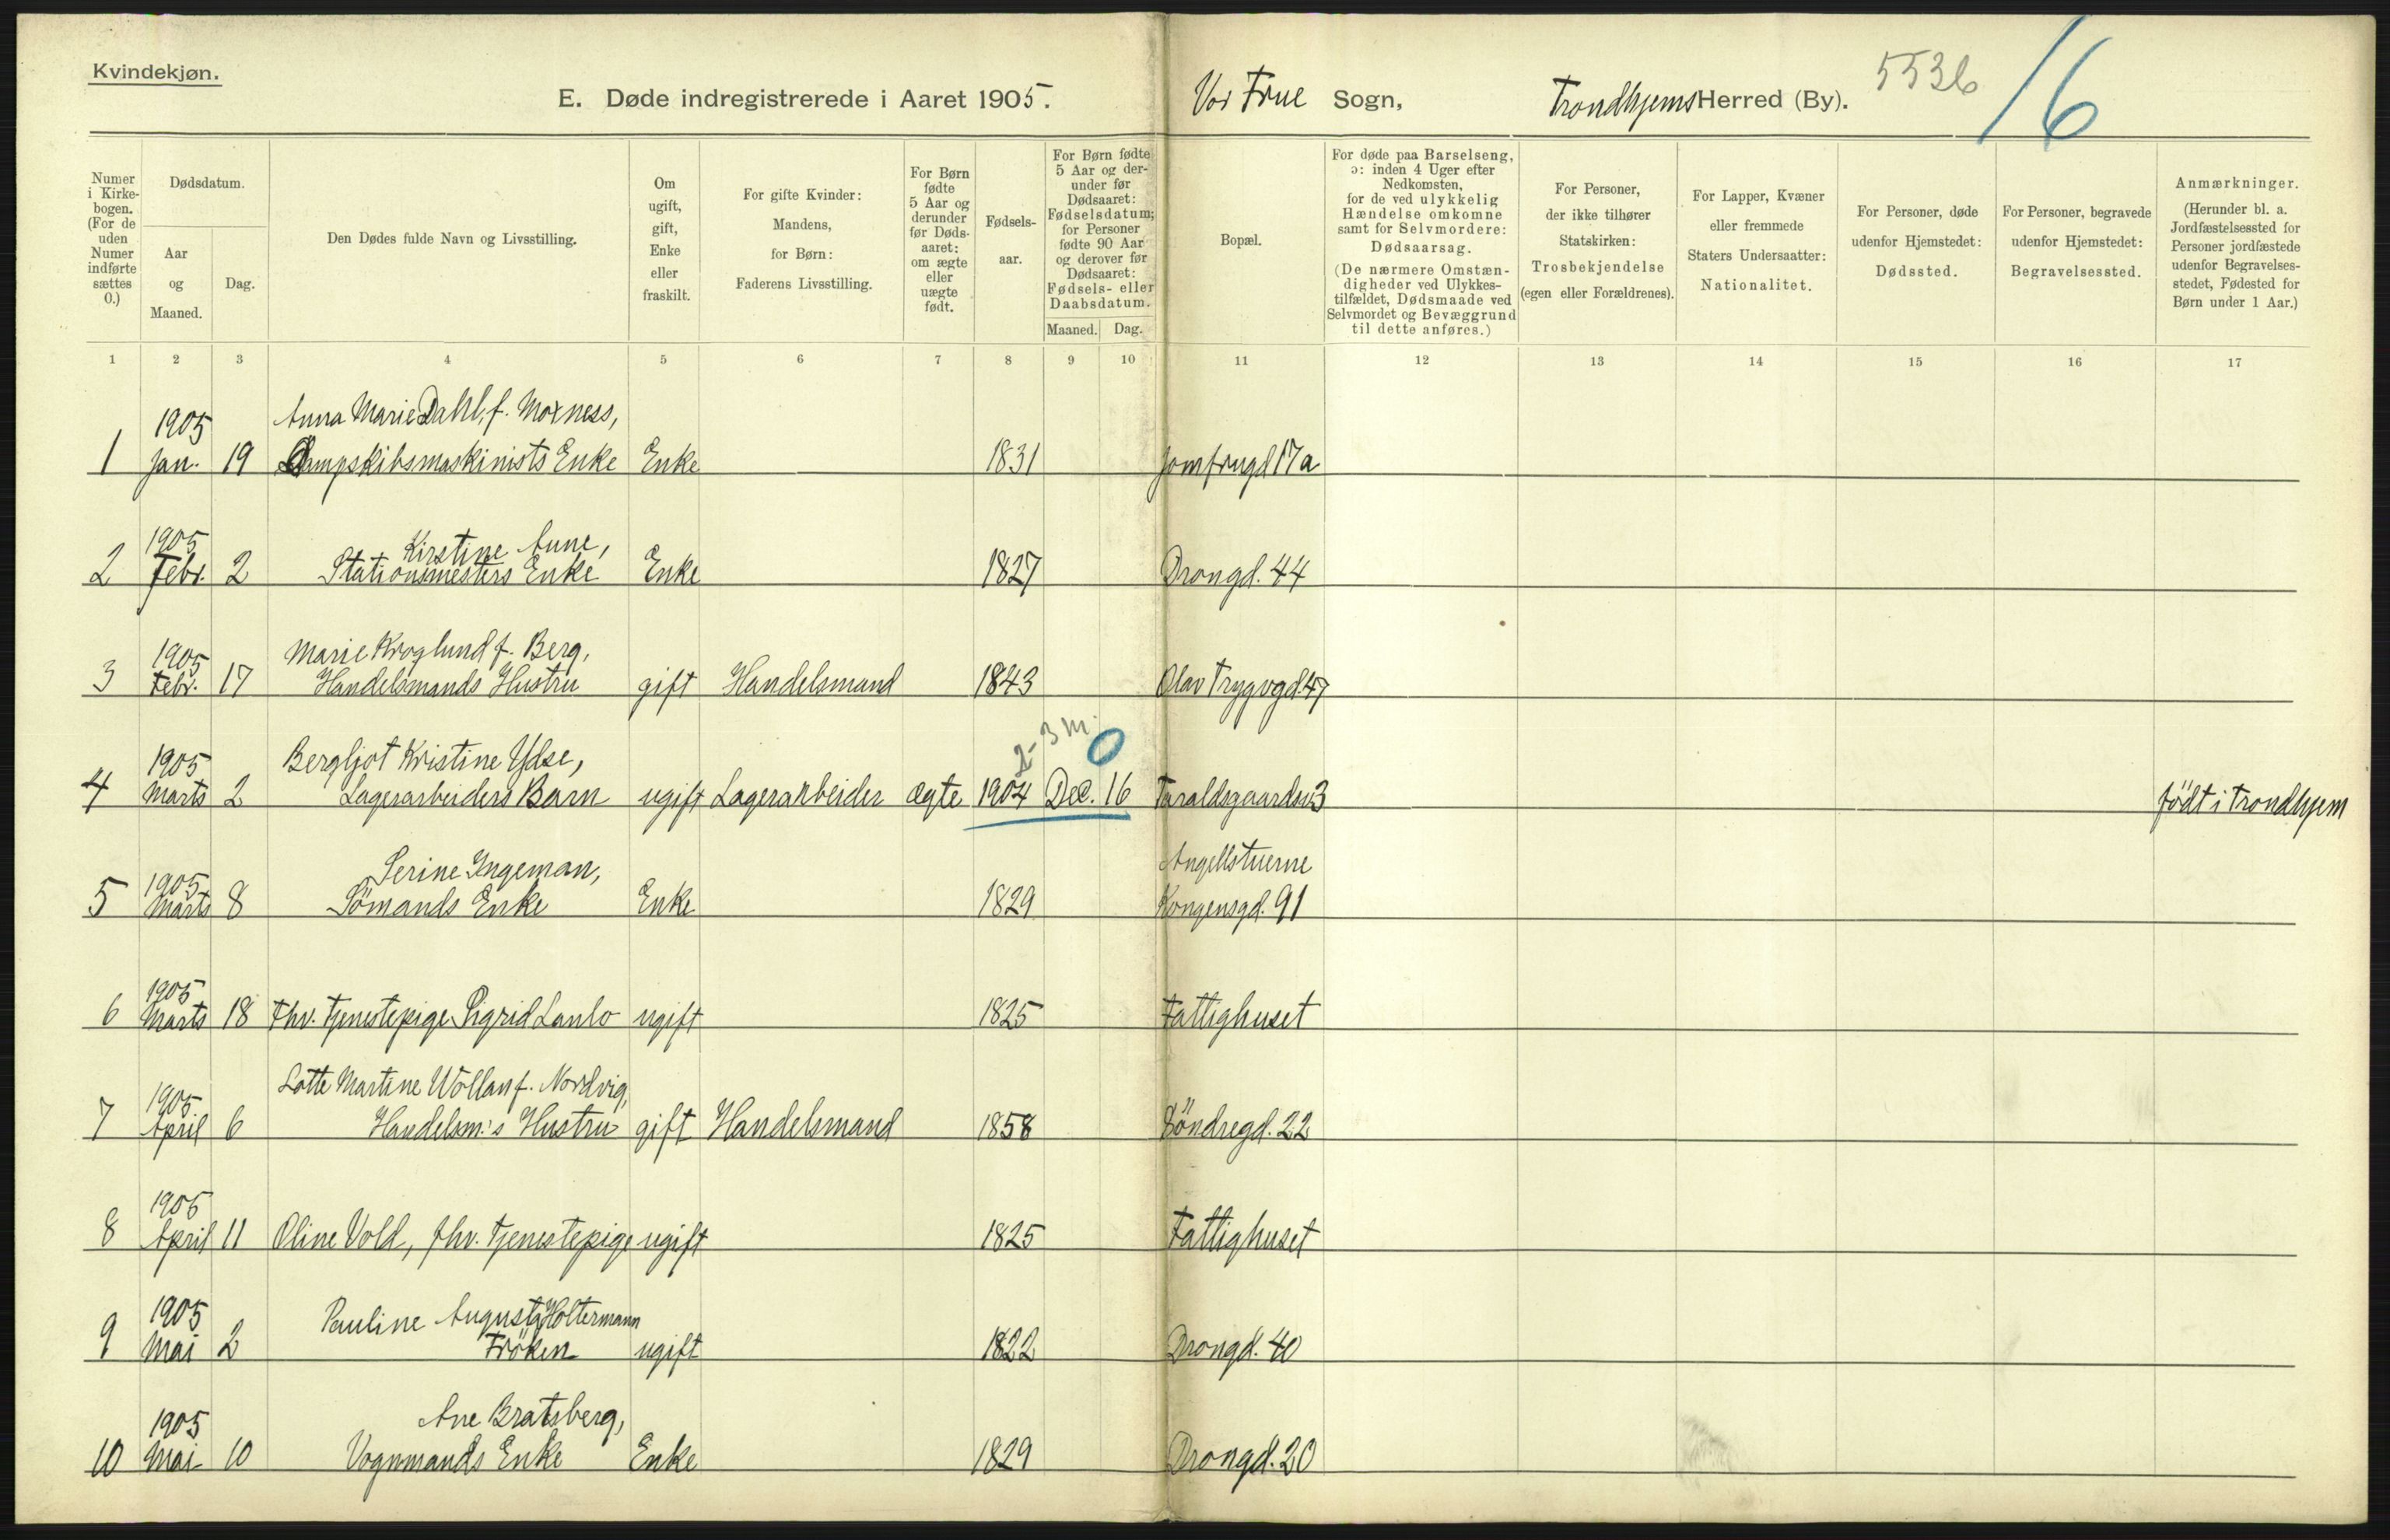 Kvindekjøn.
E. Døde indregistrerede i Aaret 1905.
Vor Frue Sogn,
Trondhjems Herred (By).
5536
16
Numer i Kirkebogen. (For de uden Numer indførte sættes 0.)
Dødsdatum.
Aar og Maaned.
Dag.
Den Dødes fulde Navn og Livsstilling.
Om ugift, gift, Enke eller fraskilt.
For gifte Kvinder: Mandens, for Børn: Faderens Livsstilling.
For Børn fødte 5 Aar og derunder før Dødsaaret: om ægte eller uægte født.
Fødselsaar.
For Børn fødte 5 Aar og derunder før Dødsaaret: Fødselsdatum; for Personer fødte 90 Aar og derover før Dødsaaret: Fødsels- eller Daabsdatum.
Maaned. Dag.
Bopæl.
For døde paa Barselseng, ɔ: inden 4 Uger efter Nedkomsten, for de ved ulykkelig Hændelse omkomne samt for Selvmordere: Dødsaarsag.
(De nærmere Omstændigheder ved Ulykkestilfældet, Dødsmaade ved Selvmordet og Bevæggrund til dette anføres.)
For Personer, der ikke tilhører Statskirken: Trosbekjendelse (egen eller Forældrenes).
For Lapper, Kvæner eller fremmede Staters Undersaatter: Nationalitet.
For Personer, døde udenfor Hjemstedet: Dødssted.
For Personer, begravede udenfor Hjemstedet: Begravelsessted.
Anmærkninger. (Herunder bl. a. Jordfæstelsessted for Personer jordfæstede udenfor Begravelsesstedet, Fødested for Børn under 1 Aar.)
1 2 3 4 5 6 7 8 9 10 11 12 13 14 15 16 17
1905 Anna Marie Dahl, f. Moxness,
1 Jan. 19 Dampskibsmaskinists Enke Enke 1831 Jomfrugd 17a
1905 Kirstine Aune,
2 Febr. 2 Stationsmesters Enke Enke 1827 Drongd. 44
1905 Marie Kroglund f. Berg,
3 Febr. 17 Handelsmands Hustru gift Handelsmand 1843 Olav Trygvgd. 47
2-3 m. 0
1905 Bergljot Kristine Ydse,
4 Marts 2 Lagerarbeiders Barn ugift Lagerarbeider ægte 1904 Dec. 16 Taraldsgaardsv 3 født i Trondhjem
1905 Serine Ingeman, Angellstuerne
5 Marts 8 Sömands Enke Enke 1829 Kongensgd. 91
1905
6 Marts 18 Fhv. Tjenestepige Sigrid Lanlo ugift 1825 Fattighuset
1905 Lotte Martine Wollan f. Nordvig,
7 April 6 Handelsm.'s Hustru gift Handelsmand 1858 Söndregd. 22
1905
8 April 11 Oline Vold, fhv. Tjenestepige ugift 1825 Fattighuset
1905 Pauline Augusta Holtermann
9 Mai 2 Fröken ugift 1822 Drongd. 40
1905 Ane Bratsberg,
10 Mai 10 Vognmands Enke Enke 1829 Drongd. 20